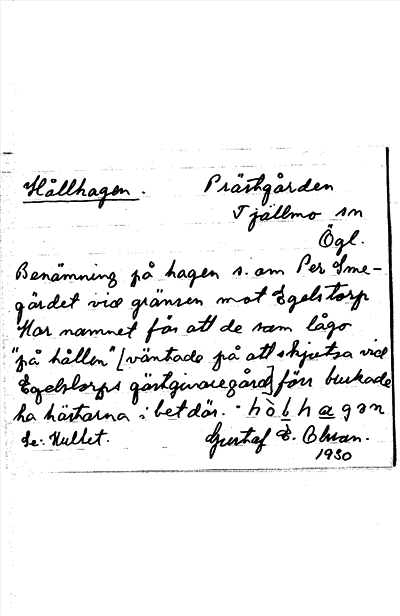 Hållhagen.
Prästgården
Tjällmo sn
Ögl.
Benämning på hagen s. om Per Sme-
gärdet vid gränsen mot Egelstorp
Har namnet för att de som lågo
"på hållen" [väntade på att skjutsa vid
Egelstorps gästgivaregård] förr brukade
ha hästarna i bet där. - hòlhagən
Se: Kullet. Gustaf E. Olsson.
1930